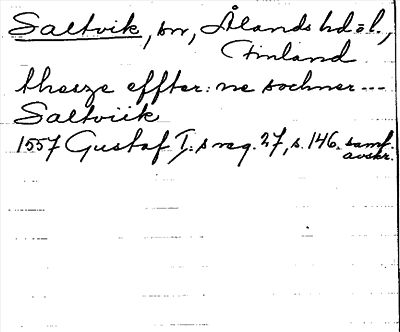 Saltvik, sn, Ålands hd o l.,
Finland
thesze effter: ne sochner ---
Saltviik
1557 Gustaf I:s reg. 27, s. 146. samt.
avskr.